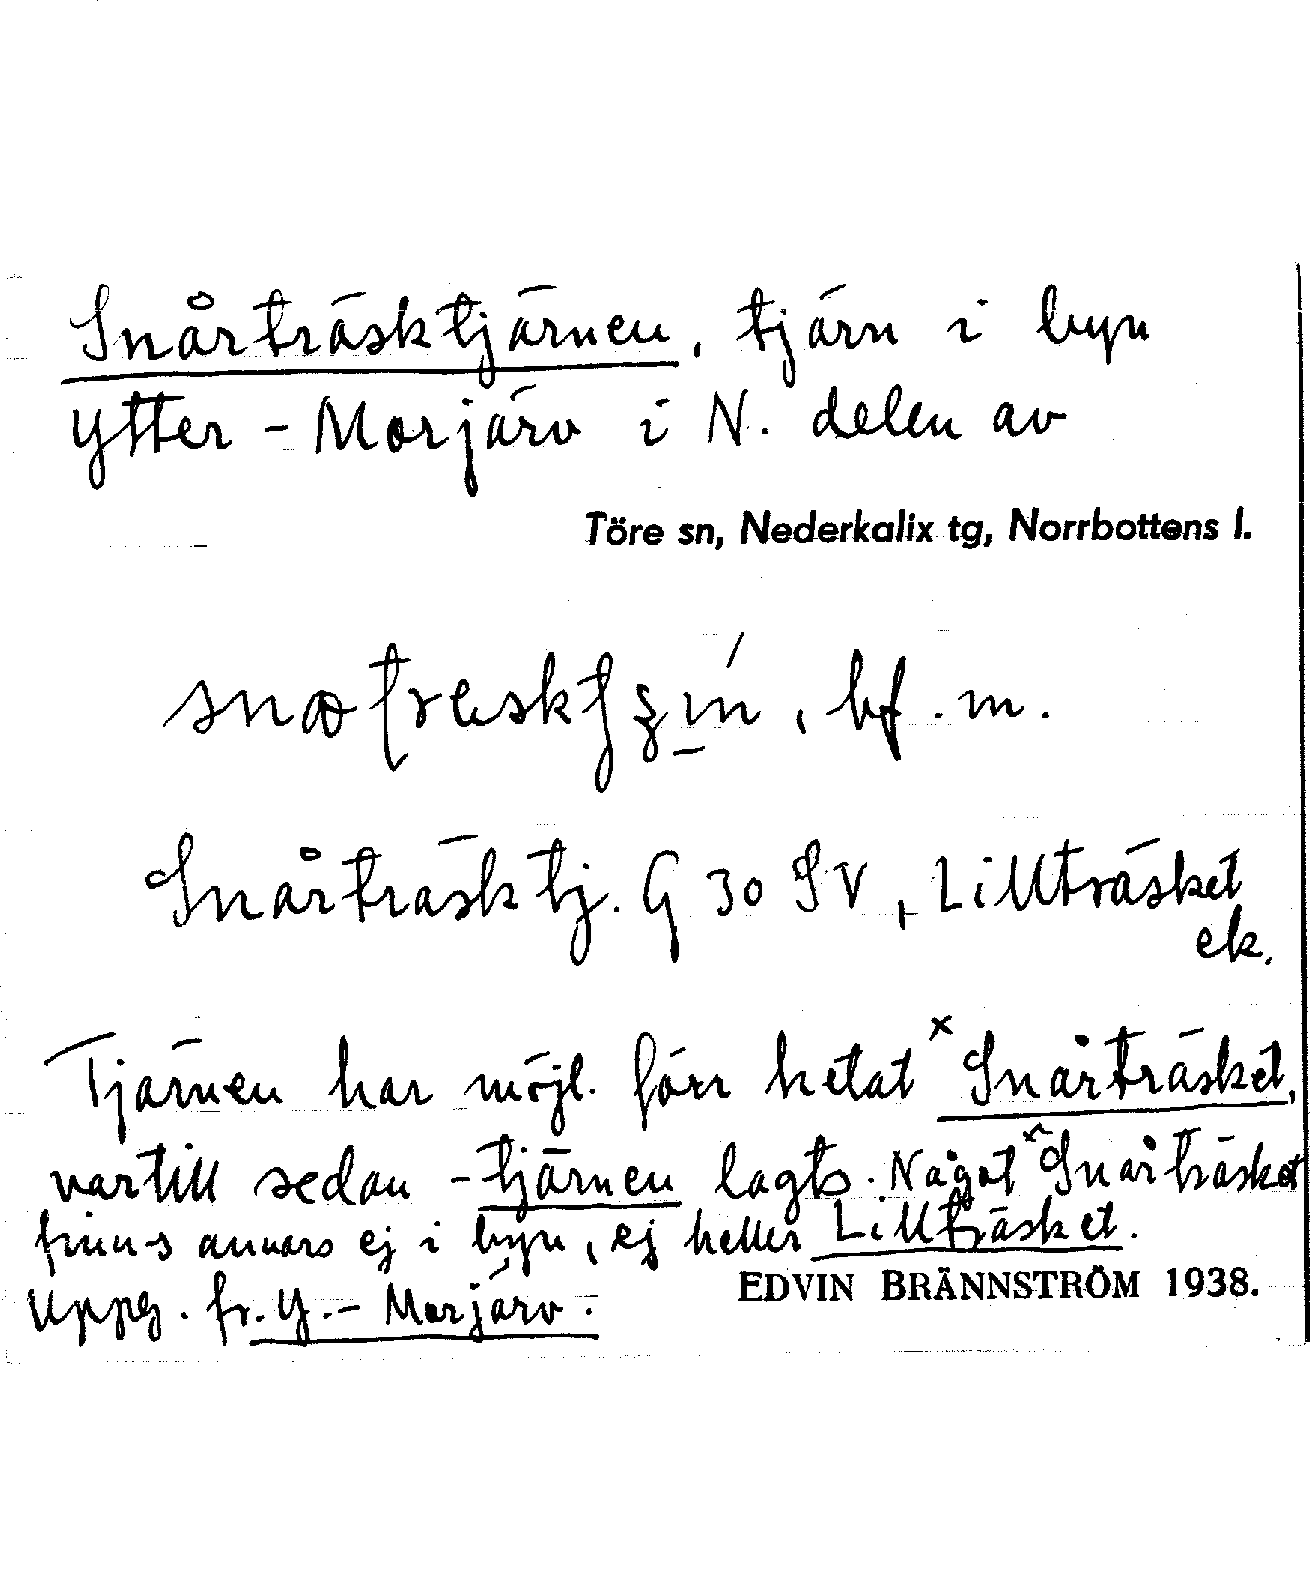 Snårträsktjärnen, tjärn i byn
Ytter-Morjärv i N. delen av
Töre sn, Nederkalix tg, Norrbottens l.
bf. m.
Snårträsktj. G 30 SV, Lillträsket
ek.
Tjärnen har möjl. förr hetat x Snårträsket,
vartill sedan -tjärnen lagts. Något x Snårträsket
finns annars ej i byn, ej heller Lillträsket.
Uppg. fr. Y.-Morjärv.
EDVIN BRÄNNSTRÖM 1938.